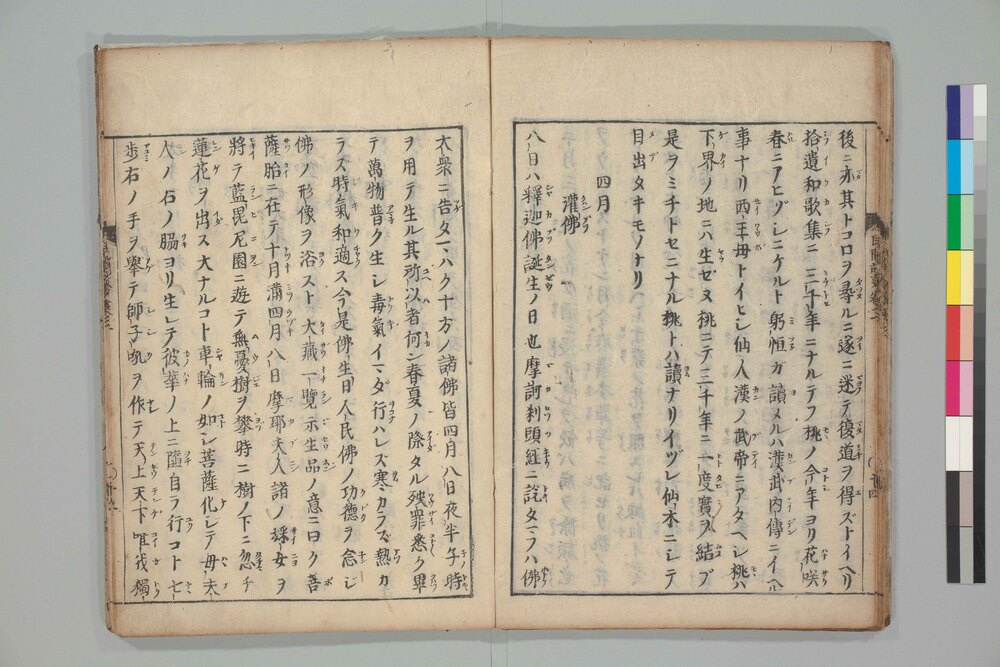 後ニ亦其トコロヲ尋ルニ遂ニ迷テ復道ヲ得ズトイヘリ
拾遺和歌集ニ三千年ニナルテフ桃ノ今年ヨリ花咲
春ニアヒゾシニケルト躬恒ガ讀メルハ漢武内傳ニイヘル
事ナリ西王母トイヒシ仙人漢ノ武帝ニアタヘシ桃ハ
下界ノ地ニハ生ゼヌ桃ニテ三千年ニ一度實ヲ結ブ
是ヲミチトセニナル桃トハ讀ナリイヅレ仙木ニシテ
目出タキモノナリ
四月
灌佛
八日ハ釋迦佛誕生ノ日也摩訶刹頭經ニ説タマフハ佛
大衆ニ告タマハク十方ノ諸佛皆四月八日夜半子時
ヲ用テ生ル其所以者何ン春夏ノ際タル殃罪悉ク畢
テ萬物普ク生シ毒氣イマダ行ハレズ寒カラズ熱カ
ラズ時氣和適ス今是佛生日人民佛ノ功德ヲ念シ
佛ノ形像ヲ浴スト大藏一覽示生品ノ意ニ曰ク菩
薩胎ニ在テ十月滿四月八日摩耶夫人諸ノ婇女ヲ
將テ藍毘尼園ニ遊テ無憂樹ヲ攀時ニ樹ノ下ニ忽チ
蓮花ヲ出ス大ナルコト車輪ノ如シ菩薩化シテ母夫
人ノ右ノ脇ヨリ生レテ彼華ノ上ニ墮自ラ行コト七
歩右ノ手ヲ舉テ師子吼ヲ作テ天上天下唯我獨